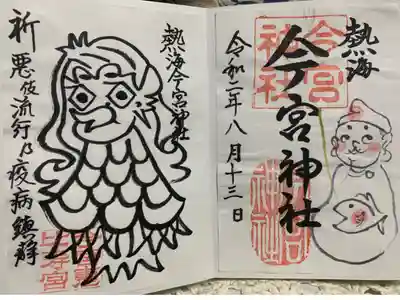 熱海
今宮神社
今宮神社
令和二年八月十三日
熱海今宮神社
祈 悪伎流行乃疫病鎮静